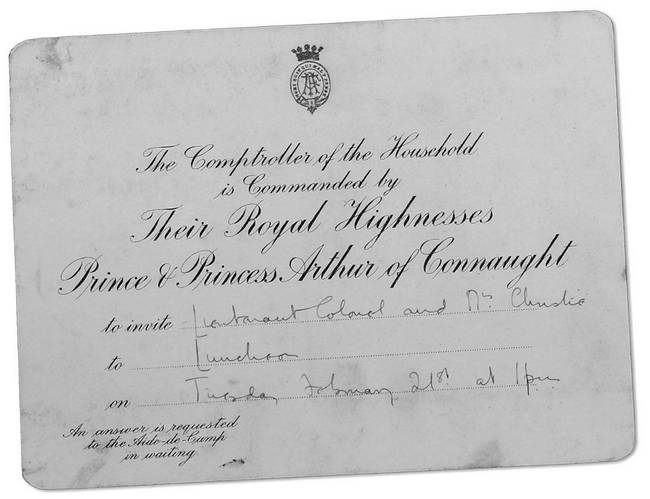 The Comptroller of the Household
is Commanded by
Their Royal Highnesses
Prince & Princess Arthur of Connaught
to invite Lieutenant Colonel and Mrs Christie
to Luncheon
on Tuesday February 21st at 1pm
An answer is requested
to the Aide-de-Camp
in waiting